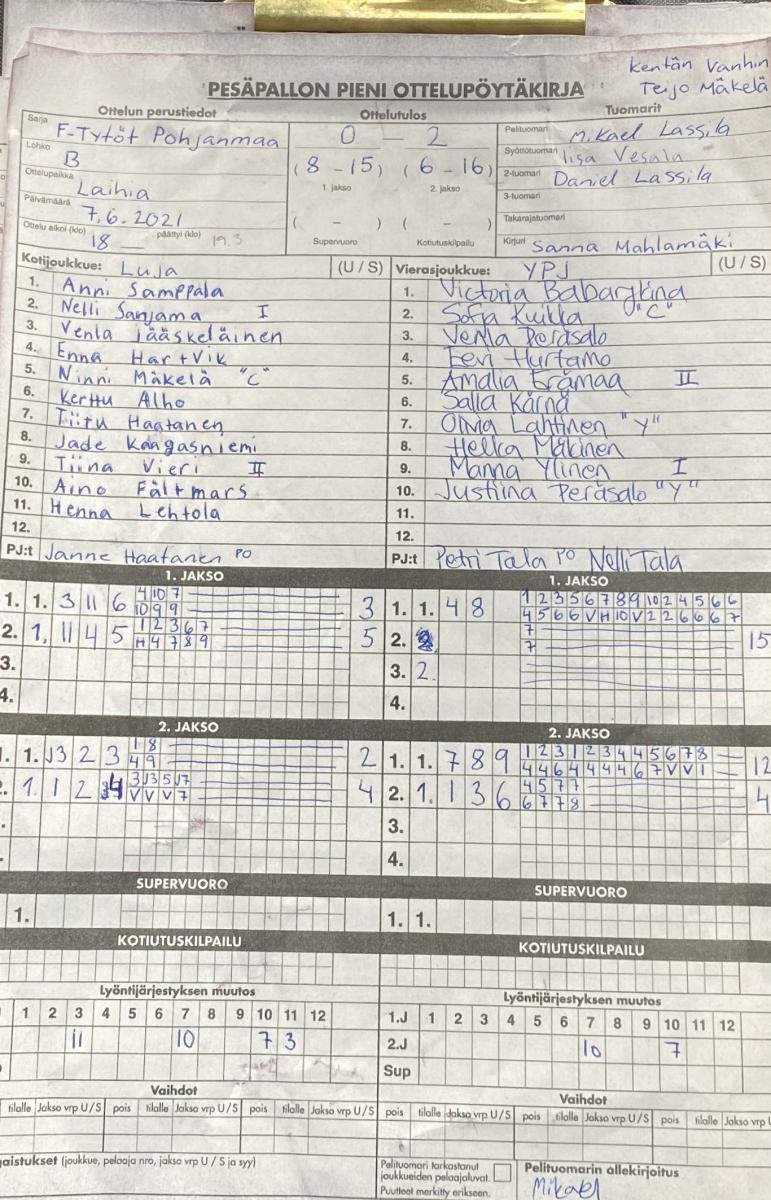 Kentän Vanhin
Teijo Mäkelä
PESÄPALLON PIENI OTTELUPÖYTÄKIRJA
Ottelun perustiedot
Ottelutulos
Tuomarit
Sarja F-Tytöt Pohjanmaa
0 - 2
Pelituomari Mikael Lassila
Lohko B
(8 - 15) (6 - 16)
Syöttötuomari Iisa Vesala
Ottelupaikka Laihia
1. jakso 2. jakso
2-tuomari Daniel Lassila
Päivämäärä 7.6.2021
3-tuomari
( - ) ( - )
Takarajatuomari
Ottelu alkoi (klo) 18 päättyi (klo) 19.3
Supervuoro Kotiutuskilpailu
Kirjuri Sanna Mahlamäki
Kotijoukkue: Luja (U / S)
Vierasjoukkue: YPJ (U / S)
1. Anni Samppala
2. Nelli Sanjama I
3. Venla Jääskeläinen
4. Enna Hartvik
5. Ninni Mäkelä "C"
6. Kerttu Alho
7. Tiitu Haatanen
8. Jade Kangasniemi
9. Tiina Vieri II
10. Aino Fältmars
11. Henna Lehtola
12.
PJ:t Janne Haatanen PO
1. Victoria Babarykina
2. Sofia Kuikka "C"
3. Venla Peräsalo
4. Eevi Hurtamo
5. Amalia Erämaa II
6. Salla Kärnä
7. Olivia Lahtinen "Y"
8. Helka Mäkinen
9. Manna Ylinen I
10. Justiina Peräsalo "Y"
11.
12.
PJ:t Petri Tala PO Nelli Tala
1. JAKSO
1. 1. 3 11 6 4 10 7 3
10 9 9
2. 1. 11 4 5 1 2 3 6 7 5
H 4 7 8 9
3.
4.
1. JAKSO
1. 1. 4 8 1 2 3 5 6 7 8 9 10 2 4 5 6 6
4 5 6 6 V H 10 V 2 2 6 6 6 7
2. 7 15
7
3. 2.
4.
2. JAKSO
1. 1. J3 2 3 1 8 2
4 9
2. 1. 1 2 4 3 J3 5 J7 4
V V V 7
2. JAKSO
1. 1. 7 8 9 1 2 3 1 2 3 4 4 5 6 7 8 12
4 4 6 4 4 4 4 6 7 V V 1
2. 1. 1 3 6 4 5 7 7 4
6 7 7 8
3.
4.
SUPERVUORO
1.
SUPERVUORO
1. 1.
KOTIUTUSKILPAILU
KOTIUTUSKILPAILU
Lyöntijärjestyksen muutos
1 2 3 4 5 6 7 8 9 10 11 12
11 10 7 3
Lyöntijärjestyksen muutos
1.J 1 2 3 4 5 6 7 8 9 10 11 12
2.J 10 7
Sup
Vaihdot
tilalle Jakso vrp U / S pois tilalle Jakso vrp U / S pois tilalle Jakso vrp U / S
Vaihdot
pois tilalle Jakso vrp U / S pois tilalle Jakso vrp U / S pois tilalle Jakso vrp U
gaistukset (joukkue, pelaaja nro, jakso vrp U / S ja syy)
Pelituomari tarkastanut
joukkueiden pelaajaluvat.
Puutteet merkitty erikseen.
Pelituomarin allekirjoitus
Mikael